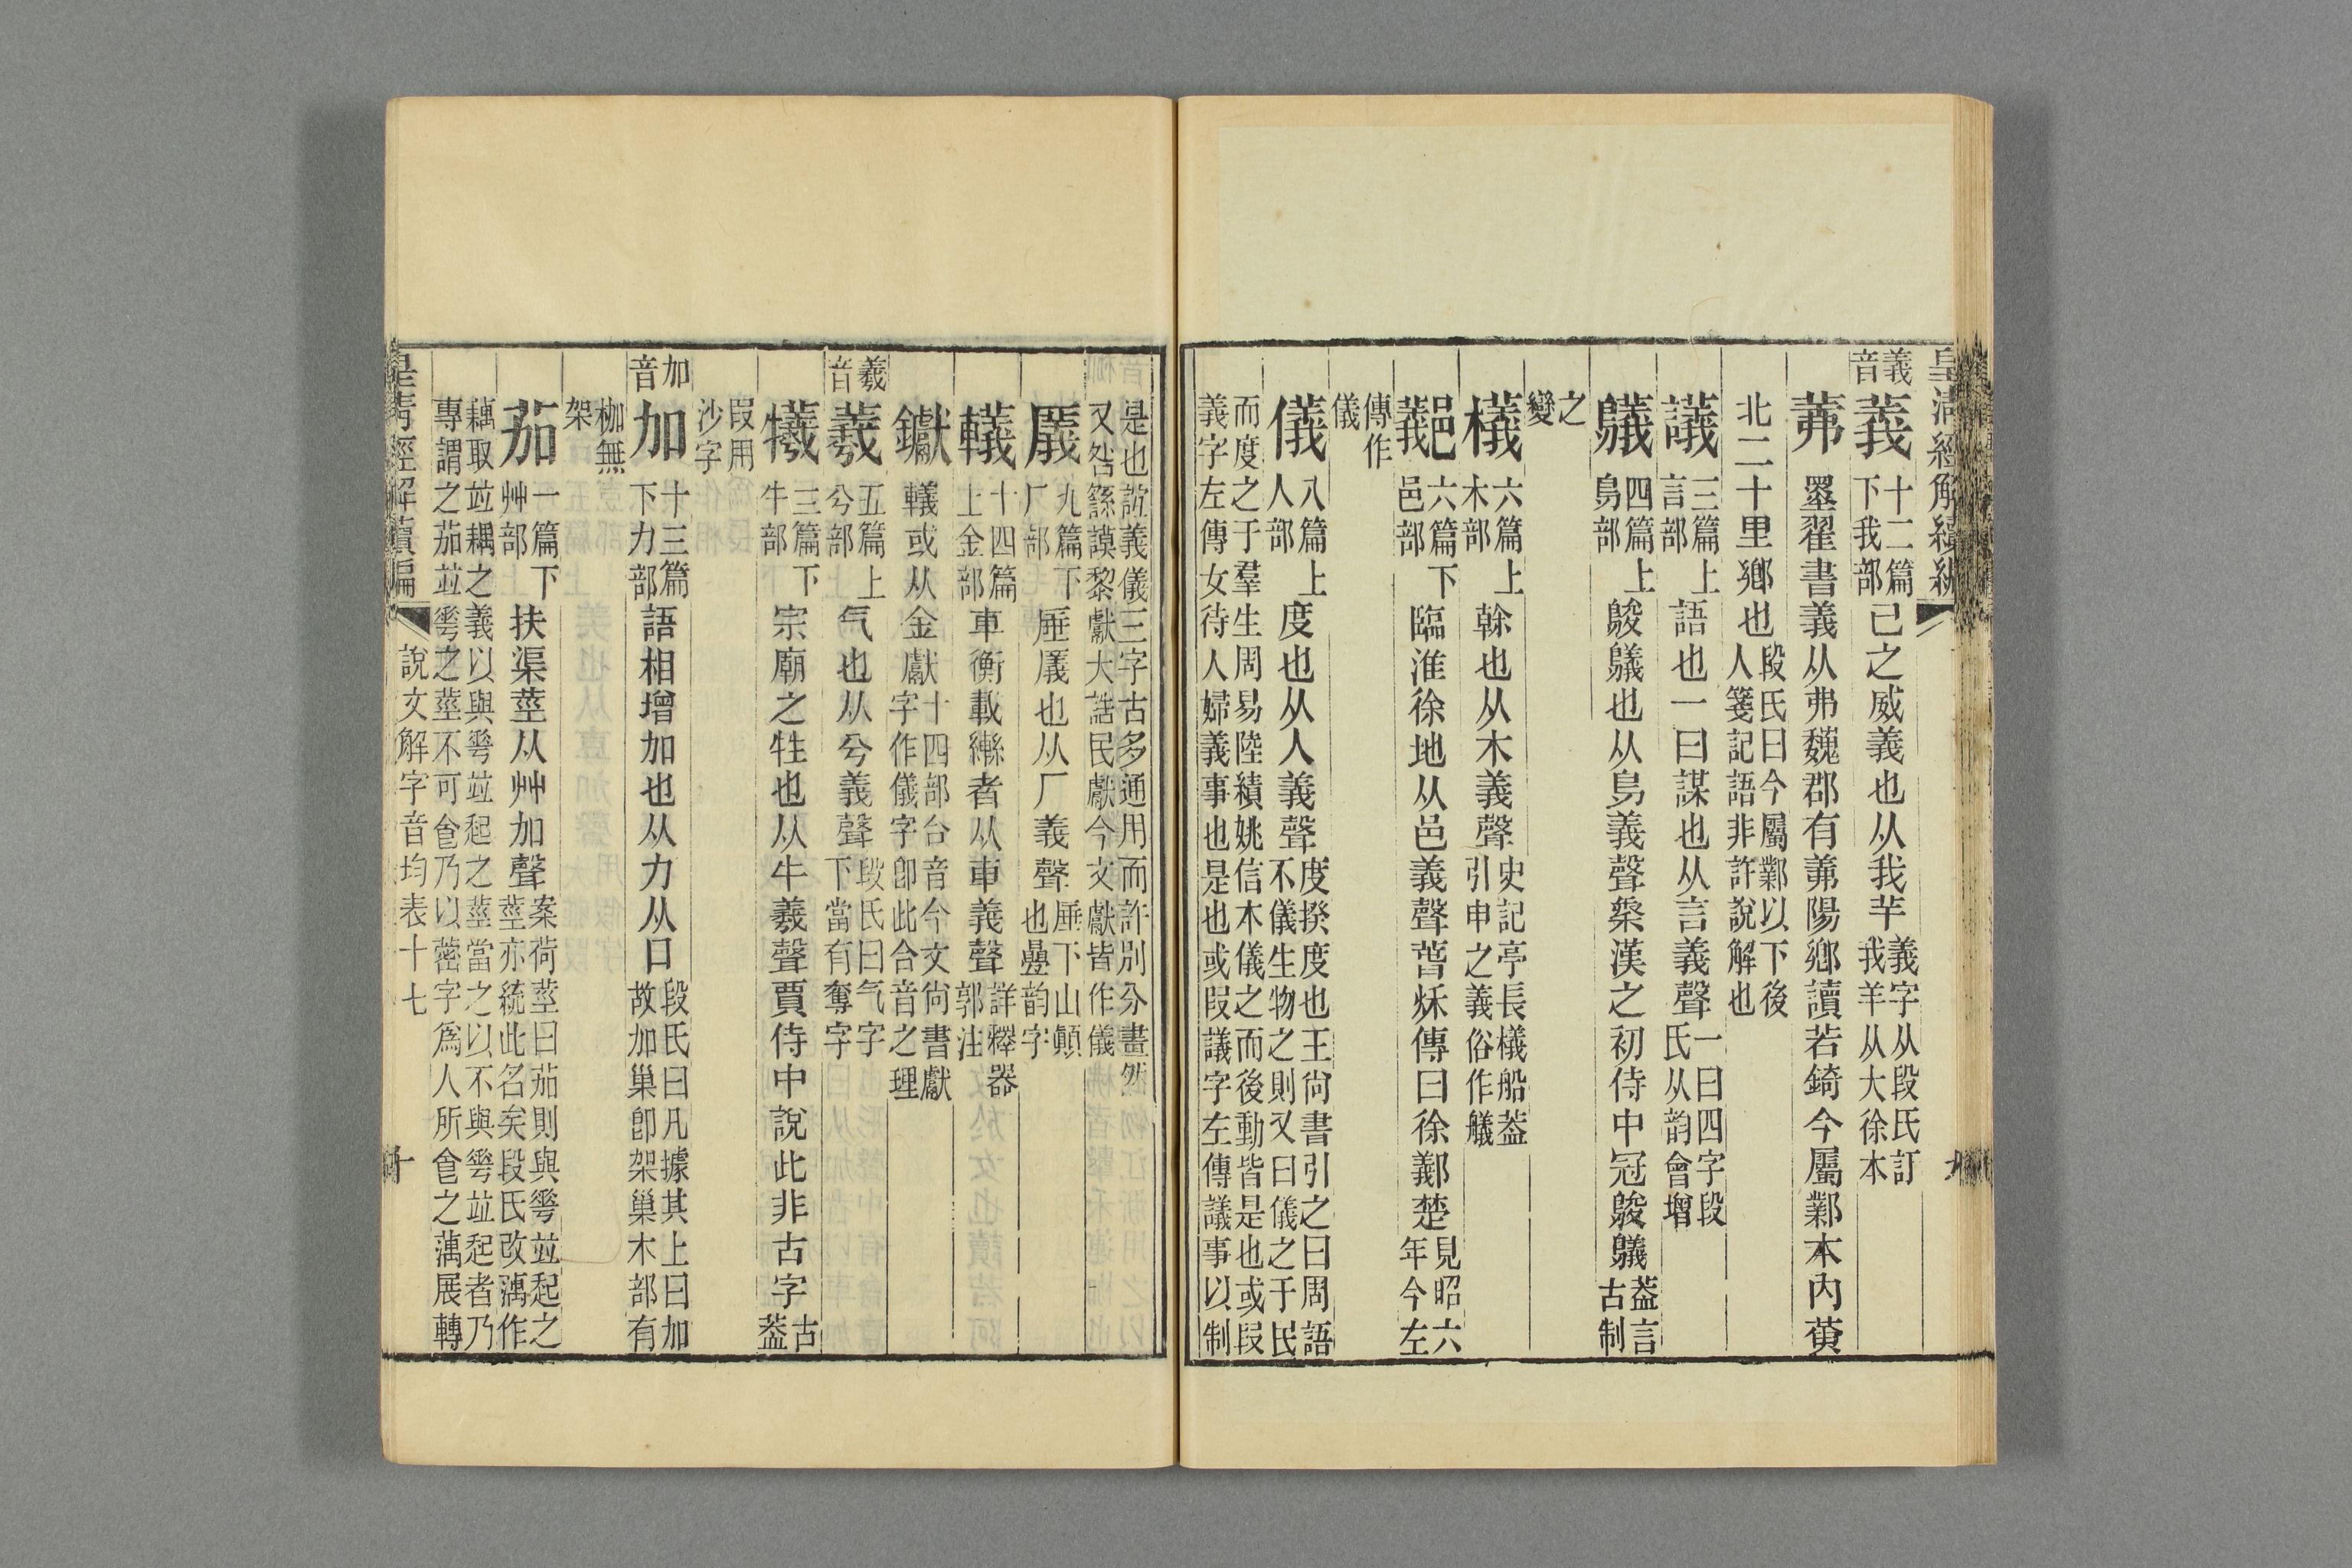 皇清經解續編
義音
義 十二篇下我部 己之威義也从我羊 義字从段氏訂我羊从大徐本
羛 墨翟書義从弗魏郡有羛陽鄕讀若錡今屬鄴本內黃
北二十里鄕也 段氏曰今屬鄴以下後人箋記語非許說解也
議 三篇上言部 語也一曰謀也从言義聲 一曰四字段氏从韵會增
鸃 四篇上鳥部 鵔鸃也从鳥義聲桼漢之初侍中冠鵔鸃 葢言古制
之變
檥 六篇上木部 榦也从木義聲 史記亭長檥船葢引申之義俗作艤
䣡 六篇下邑部 臨淮徐地从邑義聲春秌傳曰徐䣡楚 見昭六年今左
傳作儀
儀 八篇上人部 度也从人義聲 度揆度也王尙書引之曰周語不儀生物之則又曰儀之于民
而度之于羣生周易陸績姚信木儀之而後動皆是也或叚義字左傳女待人婦義事也是也或叚議字左傳議事以制
是也訛義儀三字古多通用而許別分畫然又咎繇謨黎獻大誥民獻今文獻皆作儀
㕒 九篇下厂部 厜㕒也从厂義聲 厜下山顚也㬪韵字
轙 十四篇上金部 車衡載轡者从車義聲 詳釋器郭注
钀 轙或从金獻 十四部合音今文尙書獻字作儀字卽此合音之理
羲音
羲 五篇上兮部 气也从兮義聲 段氏曰气字下當有奪字
犧 三篇下牛部 宗廟之牲也从牛羲聲賈侍中說此非古字 古葢
叚用沙字
加音
加 十三篇下力部 語相增加也从力从口 段氏曰凡據其上曰加故加巢卽架巢木部有
枷無架
茄 一篇下艸部 扶渠莖从艸加聲 案荷莖曰茄則與䔢竝起之莖亦統此名矣段氏改藕作
藕取竝耦之義以與䔢竝起之莖當之以不與䔢竝起者乃專謂之茄竝䔢之莖不可㑹乃以蔤字爲人所㑹之藕展轉
皇淸經解續編 說文解字音均表十七 十